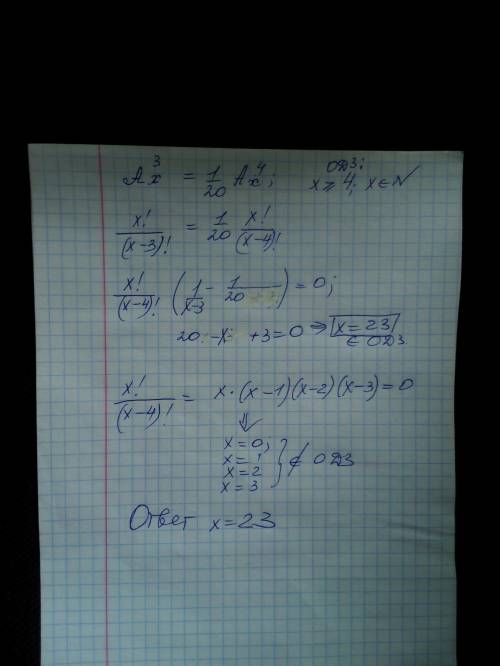 A³ₓ = 1/20 A⁴ₓ; ОДЗ: x ⩾ 4; x ∈ N
x!/(x-3)! = 1/20 x!/(x-4)!
x!/(x-4)! (1/x-3 - 1/20) = 0;
20 - x + 3 = 0 ⇒ x = 23 ∈ ОДЗ
x!/(x-4)! = x·(x-1)(x-2)(x-3) = 0
⇓
x = 0;
x = 1
x = 2
x = 3 } ∉ ОДЗ
Ответ x = 23